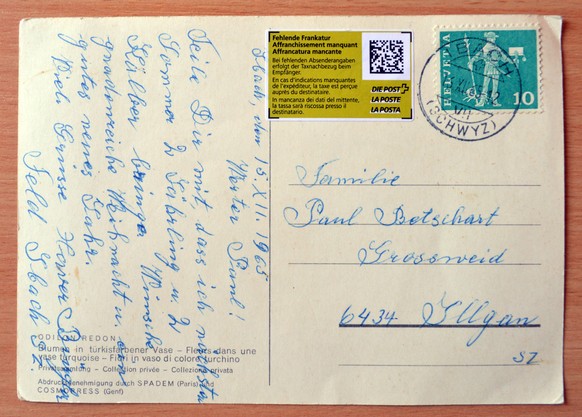 Ibach den 15.XII.1965
Werter Paul!
Teile Dir mit, dass ich nächsten
Sommer 2 Jährling u. 2
Kälber bringe. Wünsche
gnadenreiche Weihnacht u. ein
gutes neues Jahr.
Viele Grüsse
Feld Ibach SZ
ODILON REDON
Blumen in türkisfarbener Vase – Fleurs dans une
vase turquoise – Fiori in vaso di colore turchino
Privatsammlung – Collection privée – Collezione privata
Abdruckgenehmigung durch SPADEM (Paris) und
COSMOPRESS (Genf)
Fehlende Frankatur
Affranchissement manquant
Affrancatura mancante
Bei fehlenden Absenderangaben
erfolgt der Taxnachbezug beim
Empfänger.
En cas d'indications manquantes
de l'expéditeur, la taxe est perçue
auprès du destinataire.
In mancanza dei dati del mittente,
la tassa sarà riscossa presso il
destinatario.
DIE POST
LA POSTE
LA POSTA
HELVETIA
10
IBACH
(SCHWYZ)
Familie
Paul Betschart
Grossweid
6434 Illgau
SZ